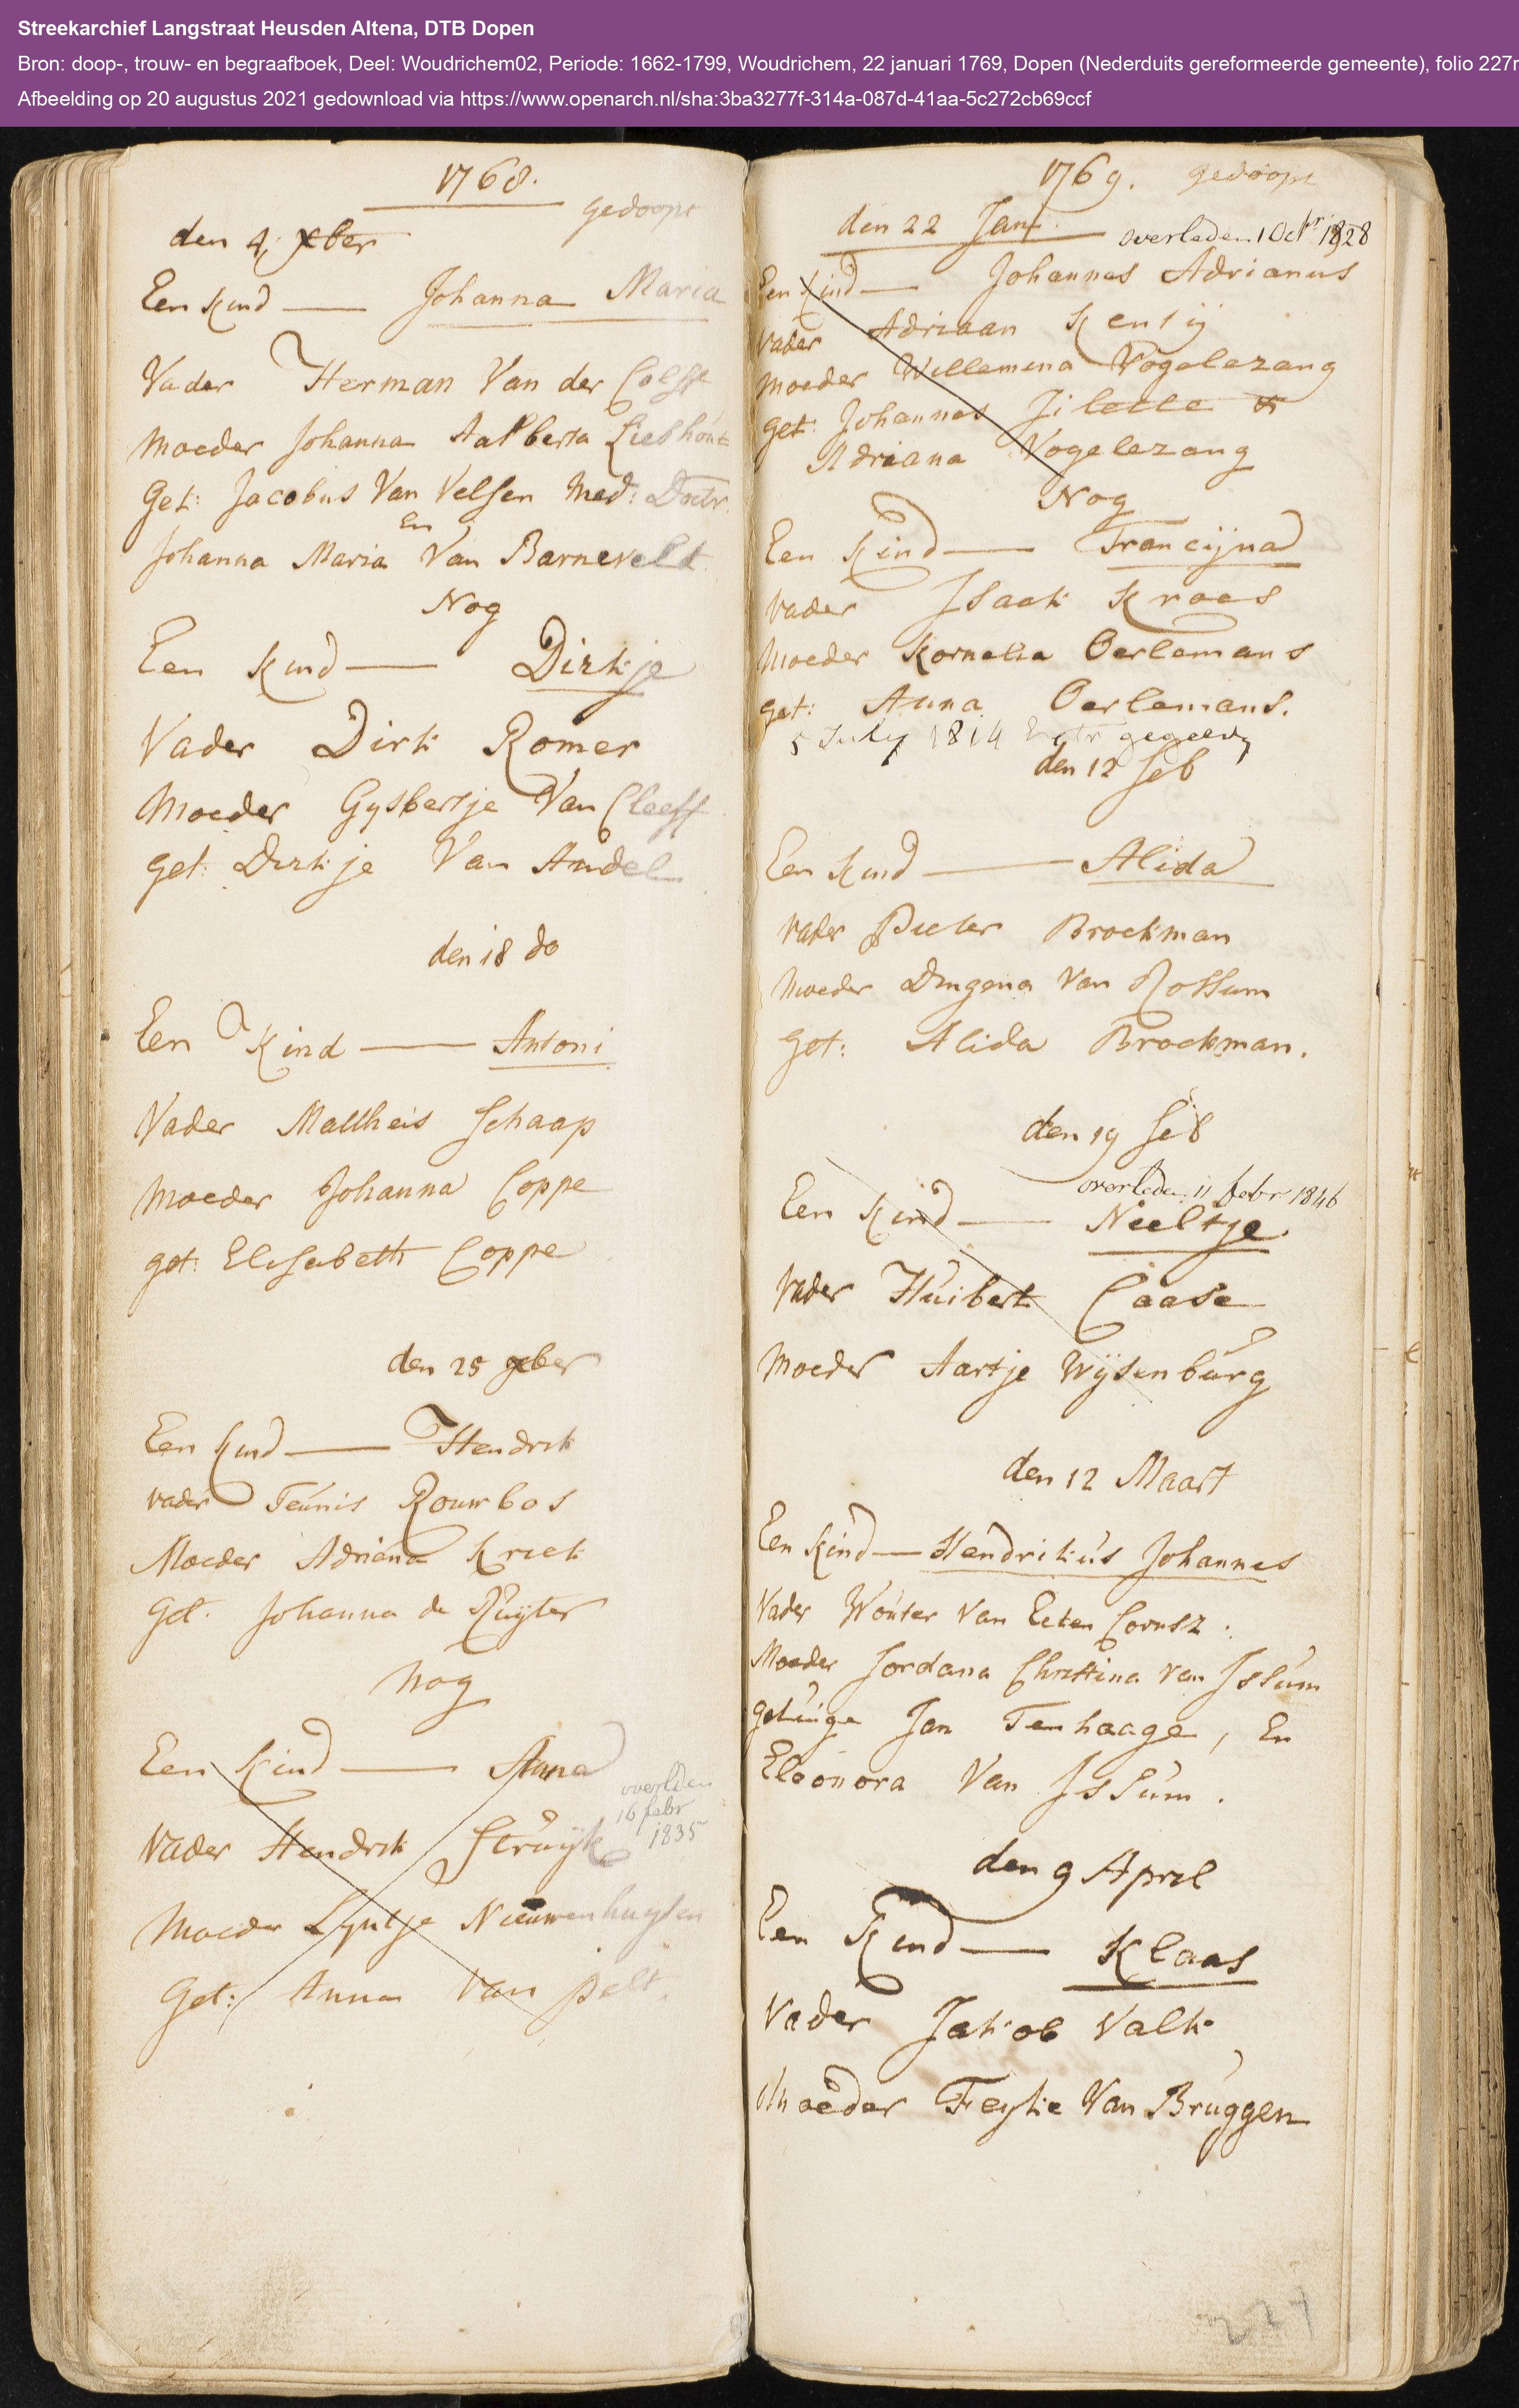 Streekarchief Langstraat Heusden Altena, DTB Dopen
Bron: doop-, trouw- en begraafboek, Deel: Woudrichem02, Periode: 1662-1799, Woudrichem, 22 januari 1769, Dopen (Nederduits gereformeerde gemeente), folio 227r
Afbeelding op 20 augustus 2021 gedownload via https://www.openarch.nl/sha:3ba3277f-314a-087d-41aa-5c272cb69ccf
1768.
gedoopt
den 4 xber
Een kind — Johanna Maria
Vader Herman Van der Colff
Moeder Johanna Aalberta Liebhout
Get: Jacobus Van Velsen Med: Doctr.
En
Johanna Maria Van Barnevelt
Nog
Een kind — Dirkje
Vader Dirk Romer
Moeder Gysbertje Van Cleeff
get: Dirkje Van Andel
den 18 do
Een Kind — Antoni
Vader Mattheis Schaap
Moeder Johanna Coppe
get: Elisabeth Coppe
den 25 xber
Een kind — Hendrik
vader Teunis Rouwbos
Moeder Adriana Kriek
Get. Johanna de Ruyter
Nog
Een kind — Anna
overleden
16 febr
1835
Vader Hendrik Struijk
Moeder Lyntje Nieuwenhuysen
Get: Anna Van Pelt.
1769. gedoopt
den 22 Jan.
overleden 1 Octr 1828
Een kind — Johannes Adrianus
Vader Adriaan Kentij
Moeder Willemina Vogelezang
get: Johannes
Adriana Vogelezang
Nog
Een kind — Francijna
Vader Isaak Kroes
Moeder Kornelia Oerlemans
get: Anna Oerlemans.
5 July 1814 Extr gegeven
den 12 feb
Een kind — Alida
Vader Pieter Brockman
Moeder Dingena Van Rossum
Get: Alida Brockman.
den 19 feb
overleden 11 febr 1846
Een kind — Neeltje.
Vader Huibert Caase
Moeder Aartje Wijsenburg
den 12 Maart
Een kind — Hendrikus Johannes
Vader Wouter Van Eeten Cornsz.
Moeder Jordana Christina van Issum
getuige Jan Tenhaage, En
Eleonora Van Issum.
den 9 April
Een Kind — Klaas
Vader Jakob Valk
Moeder Feyke Van Bruggen
227